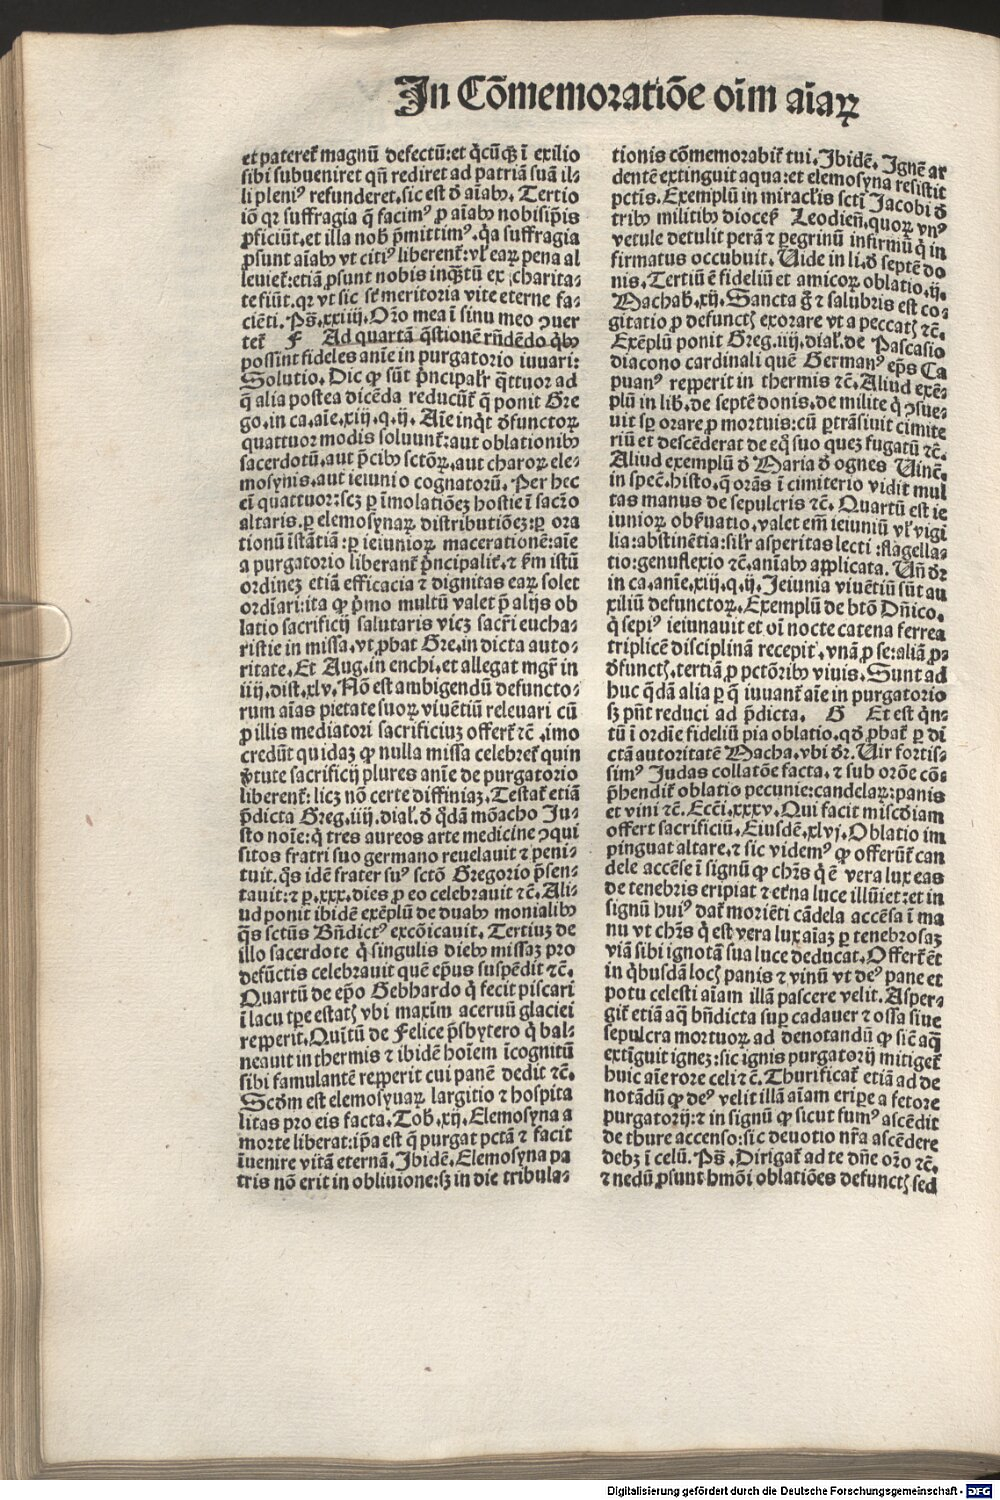 In Cōmemoratiōe oīm aīaꝝ
et pateret᷑ magnū defectū:et q̇cūqꝫ ī exilio
sibi subueniret qn̄ rediret ad patriā suā il⸗
li pleniꝰ refunderet.sic est ꝺ̄ aīabꝰ. Tertio
iō qꝛ suffragia q̄ facimꝰ ꝓ aīabꝰ nobisip̄is
ꝓficiūt.et illa nob̄ p̄mittimꝰ.q̇a suffragia
ꝓsunt aīabꝰ vt citiꝰ liberent᷑:vl̓ eaꝝ pena al
leuiet᷑:etiā ꝓsunt nobis inqꝫtū ex charita⸗
te fiūt.qꝛ vt sic sūt meritoria vite eterne fa⸗
ciēti. Ps̄.xxiiij.Or̄o mea ī sinu meo ꝯuer
tet᷑ F Ad quartā q̄stionē rn̄dēdo q̇bꝰ
possint fideles anīe in purgatorio iuuari:
Solutio. Dic ꝙ sūt p̄ncipal̓r q̄ttuor ad
q̄ alia postea dicēda reducūt᷑ q̄ ponit Gre
go.in ca.aīe.xiij.q.ij. Aīe inq̇t ꝺ̄functoꝝ
quattuor modis soluunt᷑:aut oblationibꝰ
sacerdotū.aut p̄cibꝰ sctōꝝ.aut charoꝝ ele⸗
mosynis.aut ieiunio cognatorū. Per hec
ei quattuor:scꝫ ꝑ īmolatiōeꝫ hostie ī sacr̄o
altaris.ꝑ elemosynaꝝ distributiōeꝫ:ꝑ ora
tionū īstātiā:ꝑ ieiunioꝝ macerationē:aīe
a purgatorio liberant᷑ p̄ncipalit᷑.⁊ s̄m istū
ordineꝫ etiā efficacia ⁊ dignitas eaꝝ solet
ordīari:ita ꝙ p̄mo multū valet p̄ alijs ob
latio sacrificij salutaris vicꝫ sacr̄i eucha⸗
ristie in missa.vt ꝓbat Gre.in dicta auto⸗
ritate. Et Aug.in enchi.et allegat mgr̄ in
iiij.dist.xlv. Nō est ambigendū defuncto⸗
rum aīas pietate suoꝝ viuētiū releuari cū
ꝓ illis mediatori sacrificiuꝫ offert᷑ ⁊c̄ .imo
credūt quidaꝫ ꝙ nulla missa celebret᷑ quin
v̓tute sacrificij plures anīe de purgatorio
liberent᷑: licꝫ nō certe diffiniaꝫ. Testat᷑ etiā
p̄dicta Greg.iiij.dial.ꝺ̄ q̄dā mōacho Ju⸗
sto noīe:q̇ tres aureos arte medicine ꝯqui
sitos fratri suo germano reuelauit ⁊ peni⸗
tuit.q̄s idē frater suꝰ sctō Gregorio p̄sen⸗
tauit:⁊ ꝑ.xxx.dies ꝓ eo celebrauit ⁊c̄. Ali⸗
ud ponit ibidē exēplū de duabꝰ monialibꝰ
q̄s sctūs Bn̄dictꝰ excōicauit. Tertiuꝫ de
illo sacerdote q̇ singulis diebꝰ missaꝫ pro
defūctis celebrauit quē ep̄us suspēdit ⁊c̄.
Quartū de ep̄o Gebhardo q̇ fecit piscari
ī lacu tp̄e estatꝭ vbi maxim aceruū glaciei
reꝑerit.Quītū de Felice p̄sbytero q̇ bal⸗
neauit in thermis ⁊ ibidē hoīem īcognitū
sibi famulantē reꝑerit cui panē dedit ⁊c̄.
Scd̄m est elemosynaꝝ largitio ⁊ hospita
litas pro eis facta.Tob̄.xij.Elemosyna a
morte liberat:ip̄a est q̄ purgat pctā ⁊ facit
īuenire vitā eternā.Ibidē.Elemosyna pa
tris nō erit in obliuione:sꝫ in die tribula⸗
tionis cōmemorabit᷑ tui.Ibidē. Ignē ar
dentē extinguit aqua:et elemosyna resistit
pctīs.Exemplū in miracl̓is scti Jacobi ꝺ̄
tribꝰ militibꝰ diocef̄ Leodien̄.quoꝝ vnꝰ
vetule detulit perā ⁊ ꝑegrinū infirmū q̇ in
firmatus occubuit. Uide in li.ꝺ̄ septē do
nis.Tertiū ē fideliū et amicoꝝ oblatio.ij.
Machab̄.xij.Sancta g̊ ⁊ salubris est co⸗
gitatio ꝓ defunctꝭ exorare vt a peccatꝭ ⁊c̄.
Exēplū ponit Greg.iiij.dial̓.de Pascasio
diacono cardinali quē Germanꝰ ep̄s Ca
puanꝰ reꝑerit in thermis ⁊c̄. Aliud exē⸗
plū in lib̄.de septē donis.de milite q̇ ꝯsue⸗
uit sꝑ orare ꝓ mortuis:cū ꝑtrāsiuit cimite
riū et descēderat de eq̊ suo queꝫ fugatū ⁊c̄.
Aliud exemplū ꝺ̄ Maria ꝺ̄ ognes Uincē.
in spec̄.histo.q̄ orās ī cimiterio vidit mul
tas manus de sepulcris ⁊c̄. Quartū est ie
iunioꝝ obs̓uatio.valet em̄ ieiuniū vl̓ vigi
lia:abstinētia:sil̓r asperitas lecti :flagella⸗
tio:genuflexio ⁊c̄.anīabꝰ aꝓplicata. Un̄ ꝺ̄r
in ca.anīe.xiij.q.ij.Jeiunia viuētiū sūt au
xiliū defunctoꝝ.Exemplū de btō Dn̄ico.
q̇ sepiꝰ ieiunauit et oī nocte catena ferrea
triplicē disciplinā recepit .vnā ꝓ se:aliā ꝓ⸗
ꝺ̄functꝭ.tertiā ꝓ pctōribꝰ viuis.Sunt ad
huc q̄dā alia ꝑ q̄ iuuant᷑ aīe in purgatorio
sꝫ pn̄t reduci ad p̄dicta. G Et est q̇n⸗
tū ī ordīe fideliū pia oblatio.qꝺ̄ ꝓbat᷑ ꝑ di
ctā autoritatē Macha.vbi ꝺ̄r.Uir fortis⸗
simꝰ Judas collatōe facta.⁊ sub orōe cō⸗
p̄hendit᷑ oblatio pecunie:candelaꝝ:panis
et vini ⁊c̄. Eccī.xxxv.Qui facit miscd̄iam
offert sacrificiū.Eiusdē.xlvj.Oblatio im
pinguat altare.⁊ sic videmꝰ ꝙ offerūt᷑ can
dele accēse ī signū ꝙ chr̄s q̇ ē vera lux eas
de tenebris eripiat ⁊ et̓na luce illūiet:et in
signū huiꝰ dat᷑ moriēti cādela accēsa ī ma
nu vt chr̄s q̇ est vera lux aīaꝫ ꝑ tenebrosaꝫ
viā sibi ignotā sua luce deducat.Offert᷑ ēt
in q̇busdā locꝭ panis ⁊ vinū vt deꝰ pane et
potu celesti aīam illā pascere velit. Asper⸗
git᷑ etiā aq̄ bn̄dicta suꝑ cadauer ⁊ ossa siue
sepulcra mortuoꝝ ad denotandū ꝙ sic̄ aq̄
extīguit igneꝫ:sic ignis purgatorij mitiget᷑
huic aīe rore celi ⁊c̄. Thurificat᷑ etiā ad de
notādū ꝙ deꝰ velit illā aīam eriꝑe a fetore
purgatorij:⁊ in signū ꝙ sicut fumꝰ ascēdit
de thure accenso:sic deuotio nr̄a ascēdere
debꝫ ī celū. Ps̄. Dirigat᷑ ad te dn̄e or̄o ⁊c̄.
⁊ nedū ꝓsunt hmōi oblatiōes defunctꝭ sed
Digitalisierung gefördert durch die Deutsche Forschungsgemeinschaft - DFG